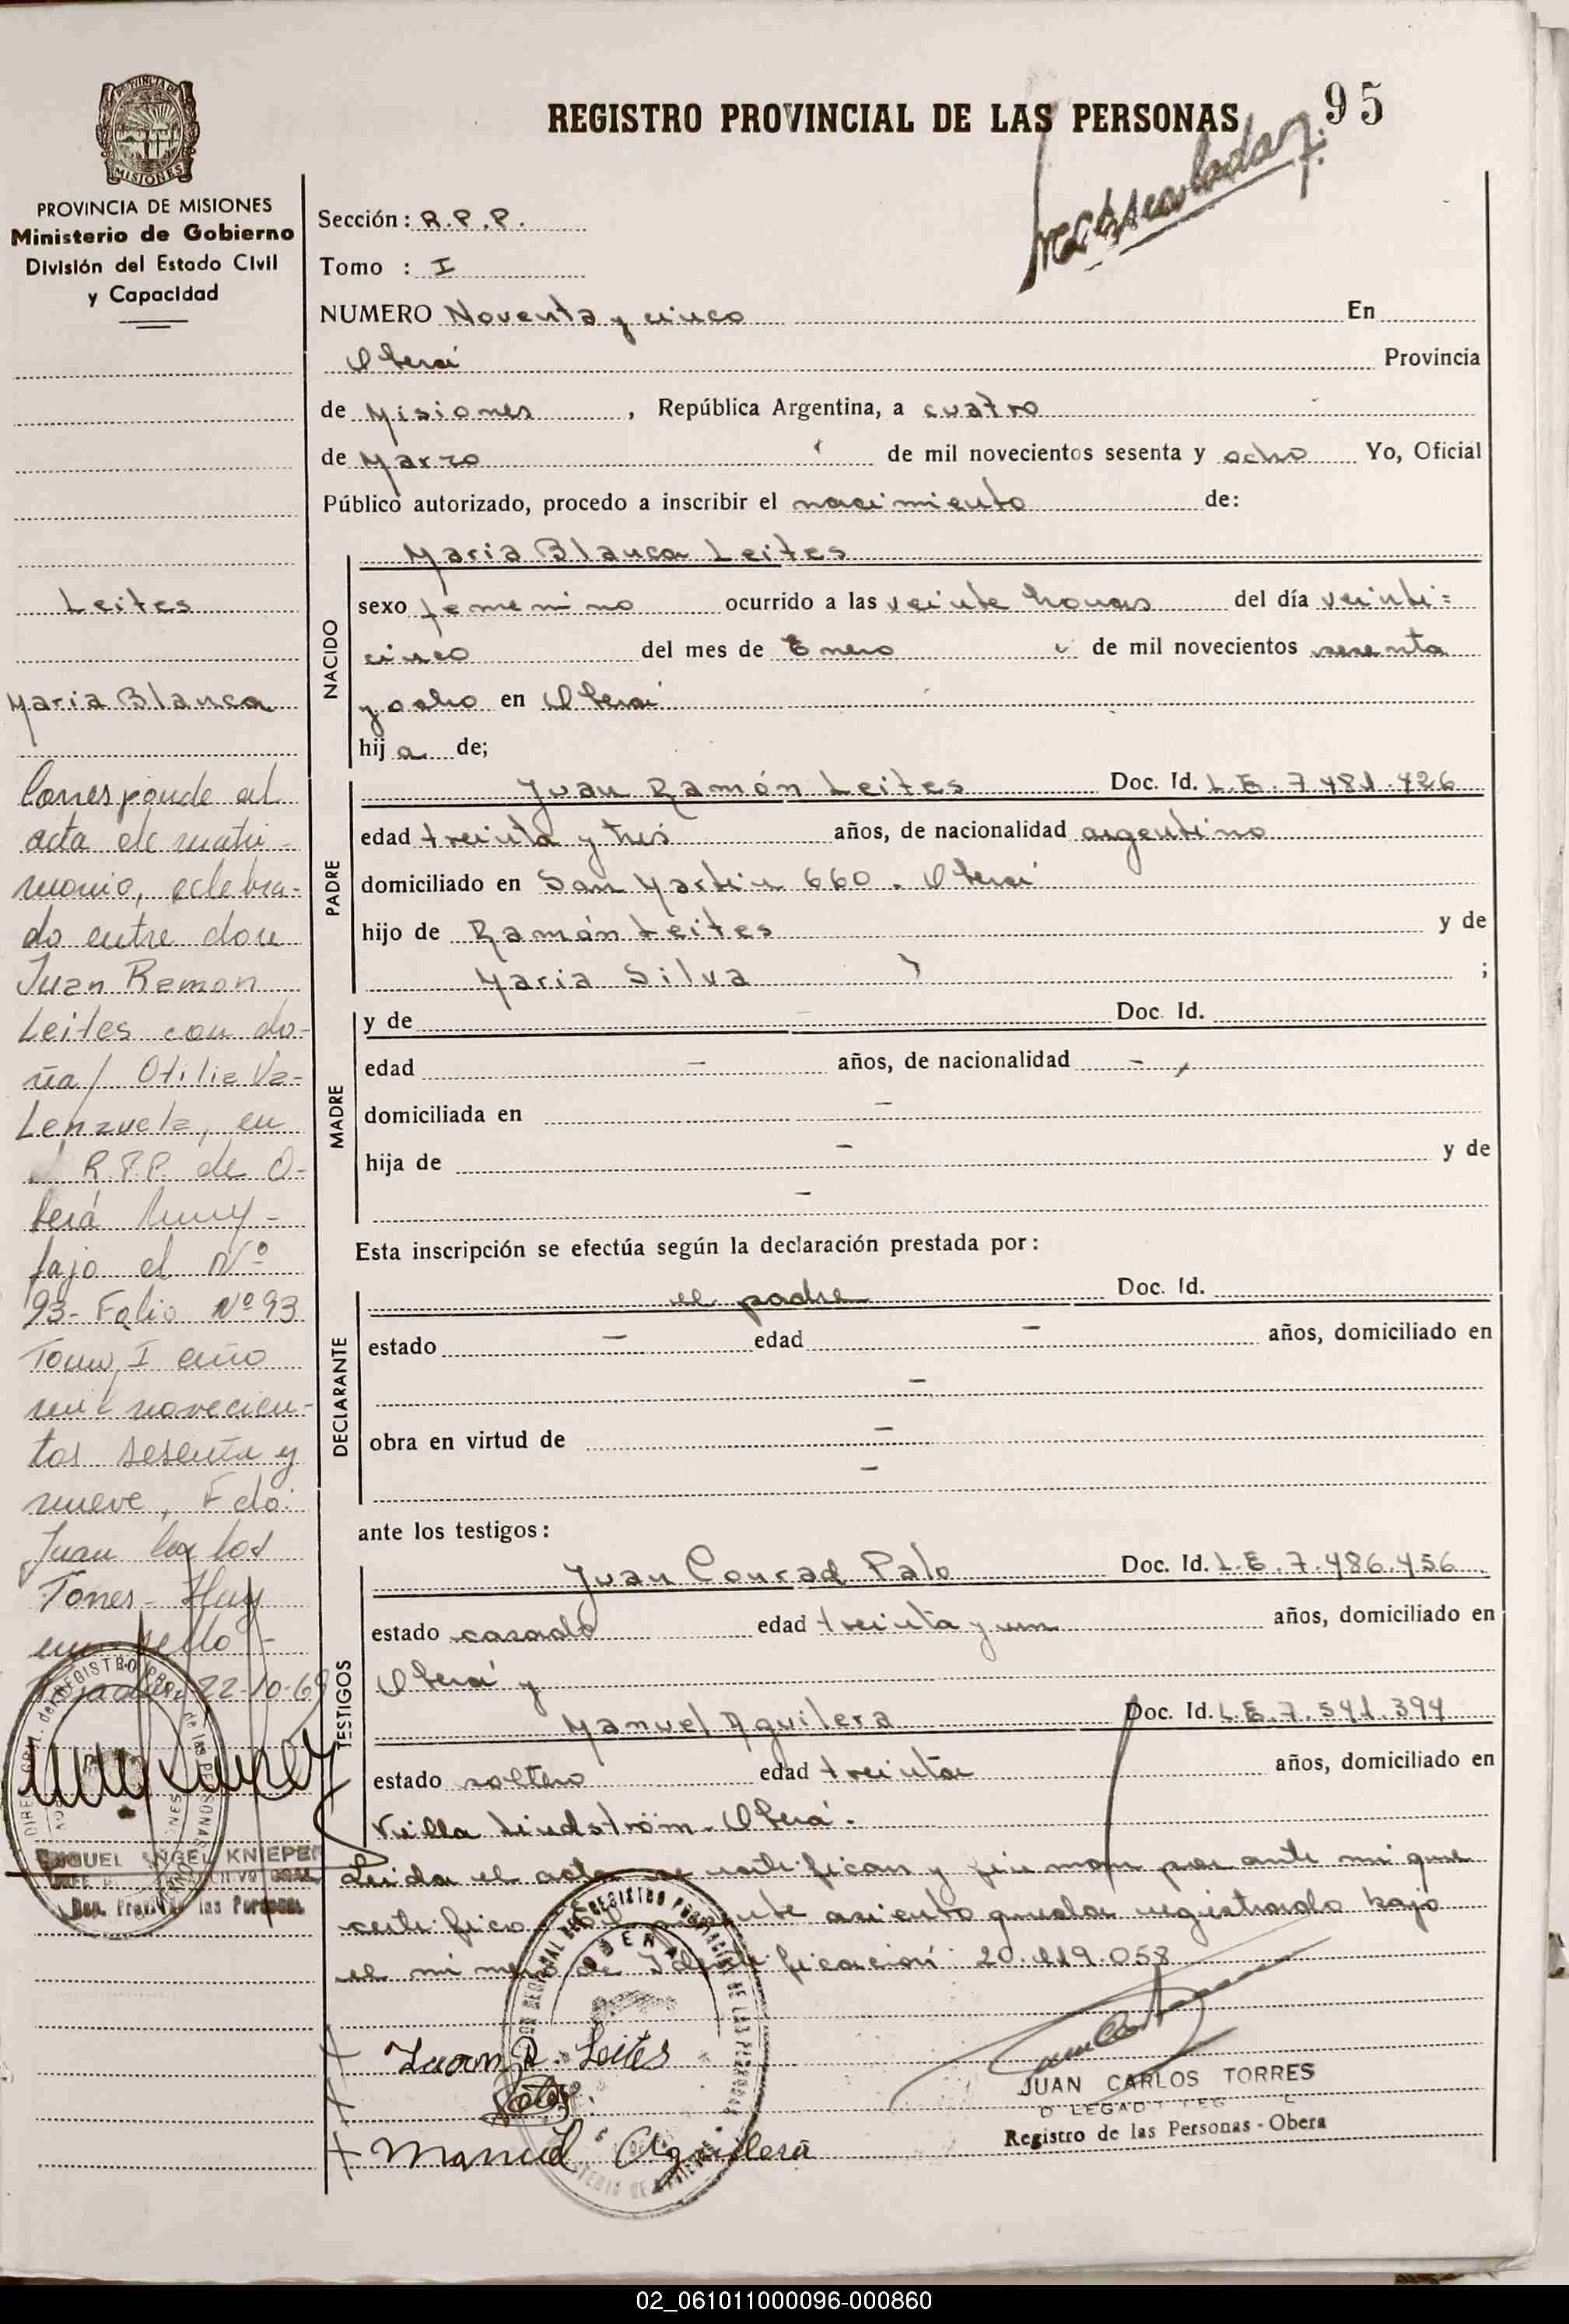 REGISTRO PROVINCIAL DE LAS PERSONAS
95
PROVINCIA DE MISIONES
MISIONES
PROVINCIA DE MISIONES
Ministerio de Gobierno
División del Estado Civil
y Capacidad
Leites
Maria Blanca
Corresponde al
acta de matri-
monio, celebra-
do entre don
Juan Ramon
Leites con do-
ña Otilia Va-
lenzuela, en
R.P.P. de O-
berá
bajo el Nº
93-Folio Nº 93
Tomo I año
mil novecien-
tos sesenta y
nueve, Fdo:
Juan Carlos
Torres- Hay
un sello-
22-10-69
MIGUEL ANGEL KNIEPE
Gen. Prov. de las Personas
Sección: R.P.P.
Tomo : I
NUMERO Noventa y cinco En
Oberá Provincia
de Misiones, República Argentina, a cuatro
de Marzo de mil novecientos sesenta y ocho Yo, Oficial
Público autorizado, procedo a inscribir el nacimiento de:
NACIDO
Maria Blanca Leites
sexo femenino ocurrido a las veinte horas del día veinti=
cinco del mes de Enero de mil novecientos sesenta
y ocho en Oberá
hija de;
PADRE
Juan Ramón Leites Doc. Id. L.E. 7.481.426
edad treinta y tres años, de nacionalidad argentino
domiciliado en San Martin 660. Oberá
hijo de Ramón Leites y de
Maria Silva ;
MADRE
y de - Doc. Id.
edad - años, de nacionalidad -
domiciliada en -
hija de - y de
-
Esta inscripción se efectúa según la declaración prestada por:
DECLARANTE
el padre Doc. Id.
estado - edad - años, domiciliado en
-
obra en virtud de -
-
ante los testigos:
TESTIGOS
Juan Conrad Palo Doc. Id. L.E. 7.486.456
estado casado edad treinta y un años, domiciliado en
Oberá y
Manuel Aguilera Doc. Id. L.E. 7.541.394
estado soltero edad treinta años, domiciliado en
Villa Lindström. Oberá.
Leida el acta se ratifican y firman por ante mi que
certifico. El presente asiento queda registrado bajo
el número de Identificación: 20.119.058
Juan R. Leites
Manuel Aguilera
JUAN CARLOS TORRES
Registro de las Personas - Obera
02_061011000096-000860